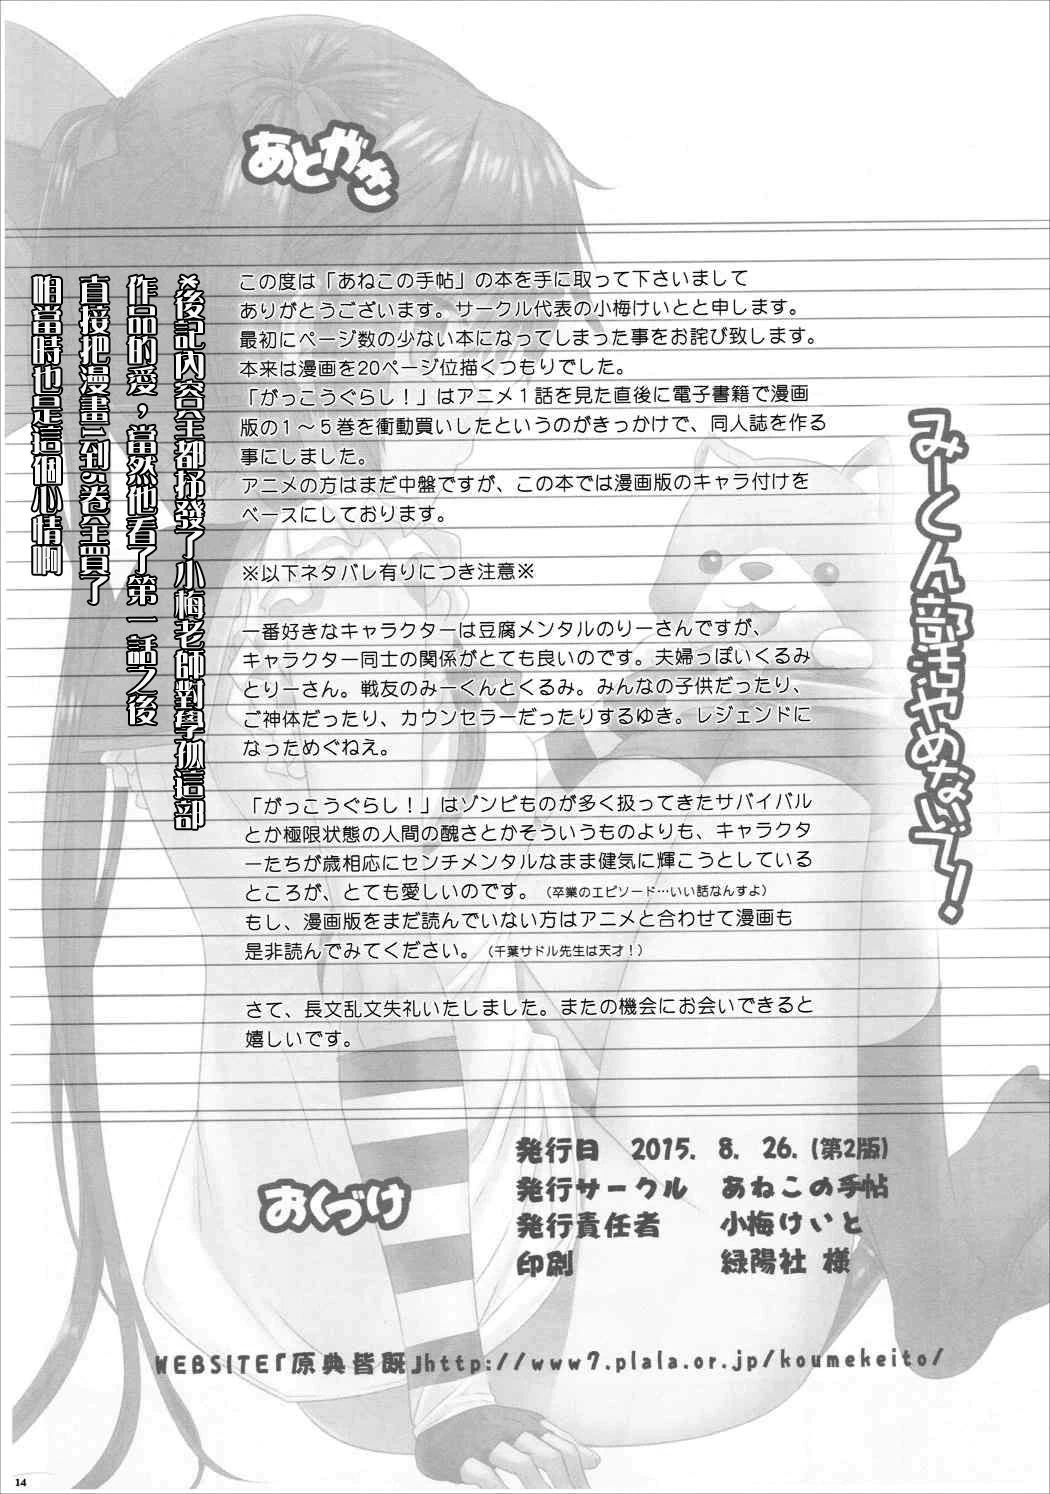 あとがき
この度は「あねこの手帖」の本を手に取って下さいまして
ありがとうございます。サークル代表の小梅けいとと申します。
最初にページ数の少ない本になってしまった事をお詫び致します。
本来は漫画を20ページ位描くつもりでした。
「がっこうぐらし！」はアニメ１話を見た直後に電子書籍で漫画
版の１～５巻を衝動買いしたというのがきっかけで、同人誌を作る
事にしました。
アニメの方はまだ中盤ですが、この本では漫画版のキャラ付けを
ベースにしております。
※以下ネタバレ有りにつき注意※
一番好きなキャラクターは豆腐メンタルのりーさんですが、
キャラクター同士の関係がとても良いのです。夫婦っぽいくるみ
とりーさん。戦友のみーくんとくるみ。みんなの子供だったり、
ご神体だったり、カウンセラーだったりするゆき。レジェンドに
なっためぐねえ。
「がっこうぐらし！」はゾンビものが多く扱ってきたサバイバル
とか極限状態の人間の醜さとかそういうものよりも、キャラクタ
ーたちが歳相応にセンチメンタルなまま健気に輝こうとしている
ところが、とても愛しいのです。（卒業のエピソード…いい話なんすよ）
もし、漫画版をまだ読んでいない方はアニメと合わせて漫画も
是非読んでみてください。（千葉サドル先生は天才！）
さて、長文乱文失礼いたしました。またの機会にお会いできると
嬉しいです。
みーくん部活やめないで！
*後記內容全都抒發了小梅老師對學孤這部
作品的愛，當然他看了第一話之後
直接把漫畫1到5卷全買了
怕當時也是這個心情啊
おくづけ
発行日 2015. 8. 26. (第2版)
発行サークル あねこの手帖
発行責任者 小梅けいと
印刷 緑陽社 様
WEBSITE『原典皆既』http://www7.plala.or.jp/koumekeito/
14